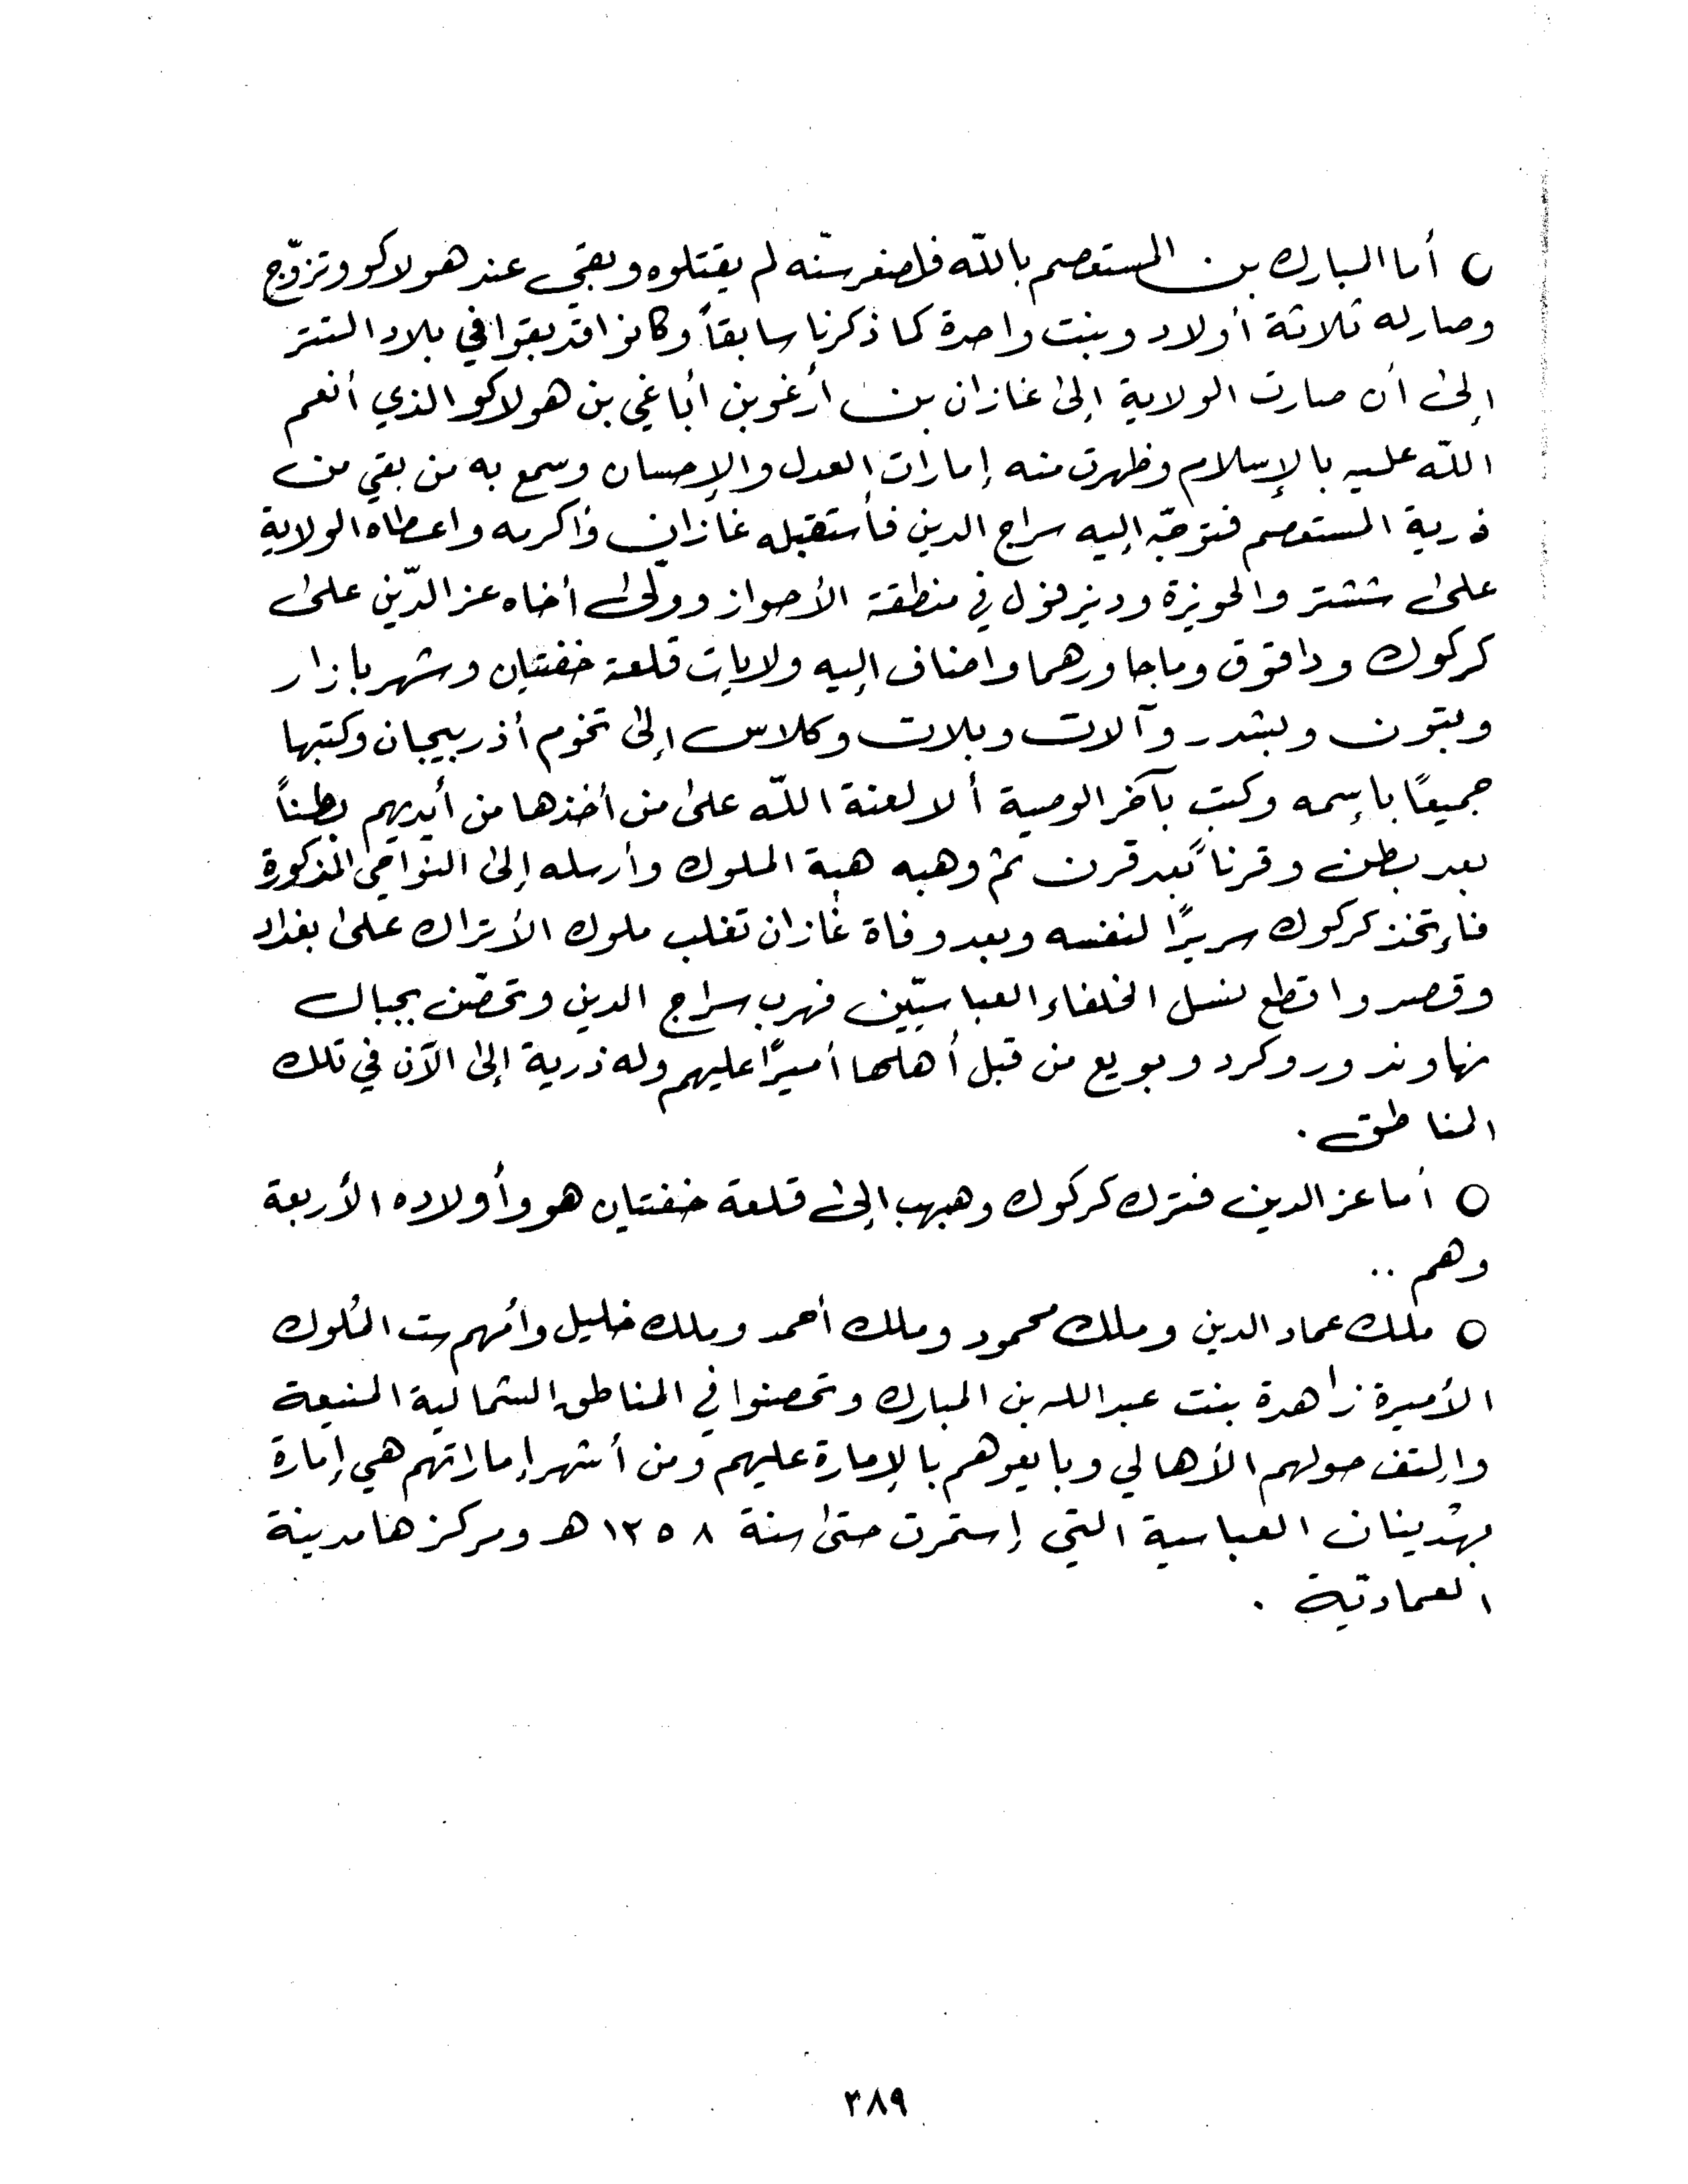 ○ أما المبارك بن المستعصم باللّه فلصغر سنّه لم يقتلوه وبقي عند هولاكو وتزوّج
وصار له ثلاثة أولاد وبنت واحدة كما ذكرنا سابقاً وكانوا قد بقوا في بلاد التتر
إلى أن صارت الولاية إلى غازان بن أرغو بن أباغي بن هولاكو الذي أنعم
اللّه عليه بالإسلام وظهرت منه إمارات العدل والإحسان وسمع به من بقي من
ذرية المستعصم فتوجّه إليه سراج الدين فأستقبله غازان وأكرمه واعطاه الولاية
على ششتر والحويزة ودينزفول في منطقة الأحواز وولّى أخاه عز الدّين على
كركوك وداقوق وما جاورهما واضاف إليه ولايات قلعة خفتيان وشهر بازار
وبتون وبشدر وآلات وبلات وكلاس إلى تخوم أذربيجان وكتبها
جميعًا بإسمه وكتب بآخر الوصية ألا لعنة اللّه على من أخذها من أيديهم بطناً
بعد بطن وقرناً بعد قرن ثم وهبه هبة الملوك وأرسله إلى النواحي المذكورة
فإتخذ كركوك سريرًا لنفسه وبعد وفاة غازان تغلب ملوك الأتراك على بغداد
وقصدوا قطع نسل الخلفاء العباسيّين فهرب سراج الدين وتحصّن بجبال
نهاوند وروكرد وبويع من قبل أهلها أميرًا عليهم وله ذرية إلى الآن في تلك
المناطق .
○ أما عز الدين فترك كركوك وهرب إلى قلعة خفتيان هو وأولاده الأربعة
وهم ..
○ ملك عماد الدين وملك محمود وملك أحمد وملك خليل وأمهم ست الملوك
الأميرة زاهدة بنت عبدالله بن المبارك وتحصنوا في المناطق الشمالية المنيعة
وإلتف حولهم الأهالي وبايعوهم بالإمارة عليهم ومن أشهر إماراتهم هي إمارة
بهدينان العباسية التي إستمرت حتى سنة ١٢٥٨ هـ ومركزها مدينة
العمادّية .
٣٨٩